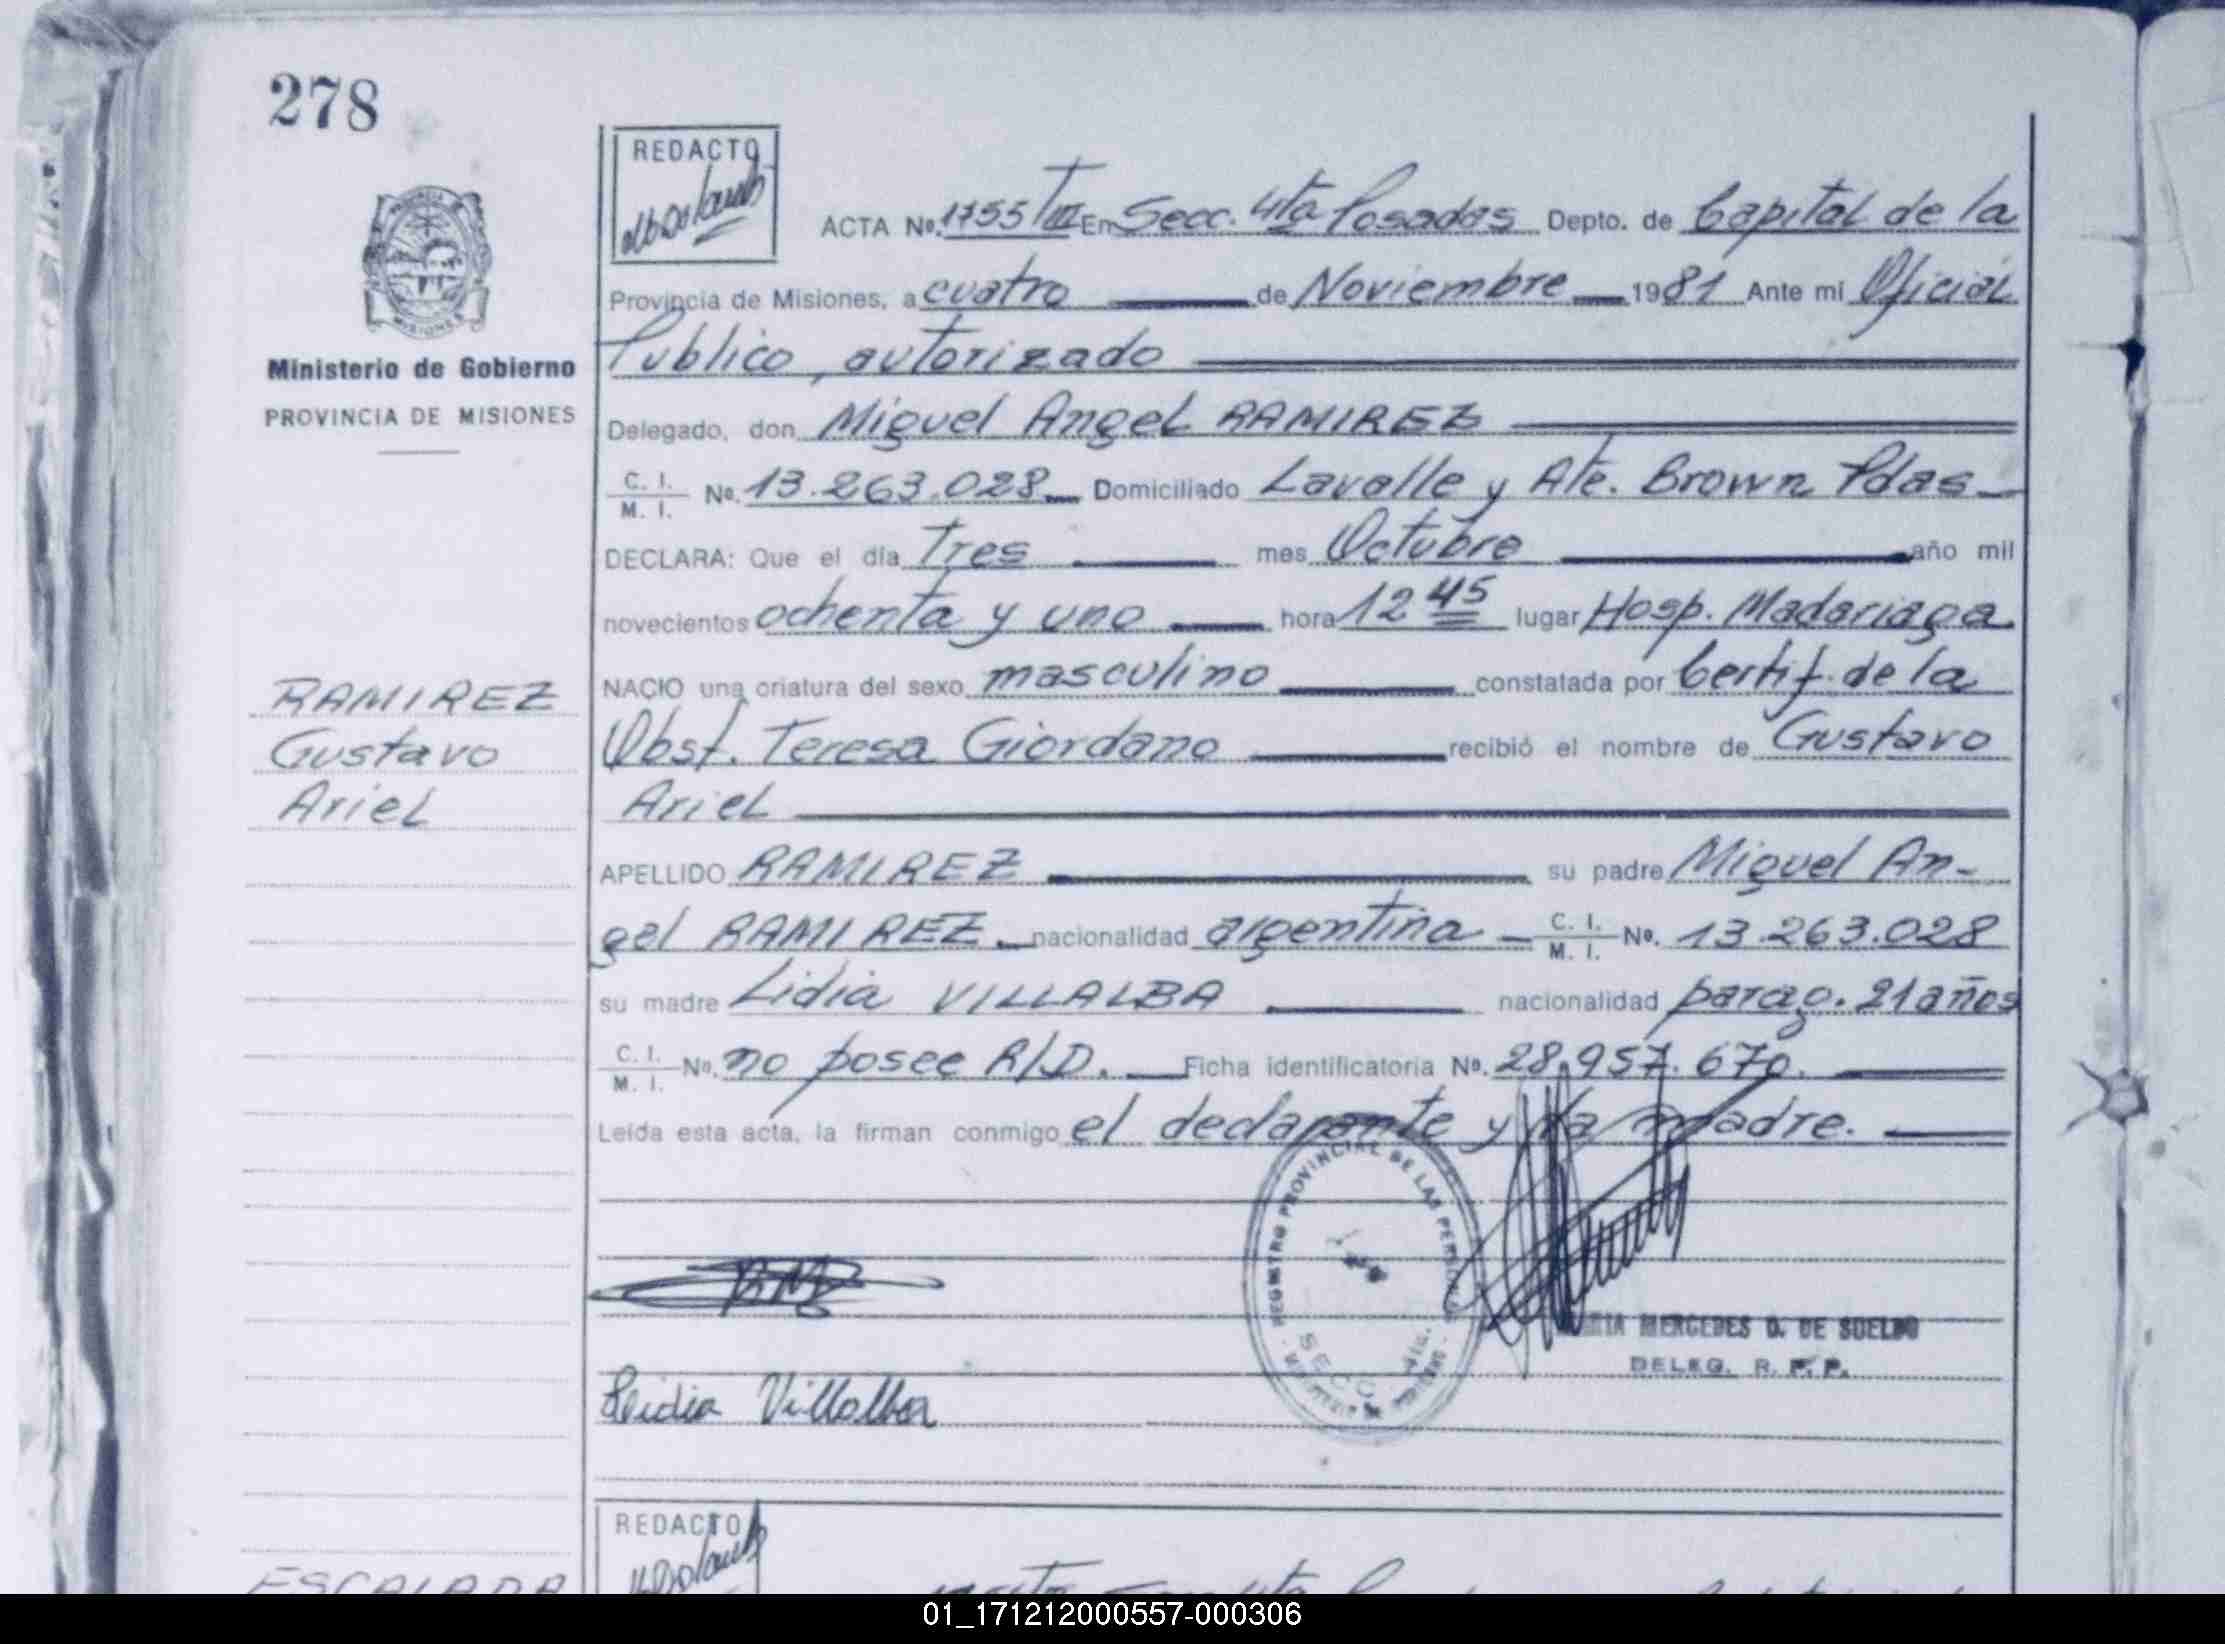 278
REDACTO
ACTA No. 1755 TIII En Secc. 4ta Posadas Depto. de Capital de la
Provincia de Misiones, a cuatro de Noviembre 1981 Ante mi Oficial
Publico, autorizado
Ministerio de Gobierno
PROVINCIA DE MISIONES
Delegado, don Miguel Angel RAMIREZ
C. I. M. I. No. 13.263.028 Domiciliado Lavalle y Ate. Brown Pdas
DECLARA: Que el día Tres mes Octubre año mil
novecientos ochenta y uno hora 12 45 lugar Hosp. Madariaga
NACIO una criatura del sexo masculino constatada por Certif. de la
Obst. Teresa Giordano recibió el nombre de Gustavo
Ariel
RAMIREZ
Gustavo
Ariel
APELLIDO RAMIREZ su padre Miguel An-
gel RAMIREZ. nacionalidad argentina C. I. M. I. No. 13.263.028
su madre Lidia VILLALBA nacionalidad parag. 21 años
C. I. M. I. No. no posee R/D. Ficha identificatoria No. 28.957.670.
Leída esta acta, la firman conmigo el declarante y la madre.
REGISTRO PROVINCIAL DE LAS PERSONAS
SECC. 4ta.
MERCEDES D. DE SUELDO
DELEG. R. P. P.
Lidia Villalba
REDACTO
ESCALADA
01_171212000557-000306